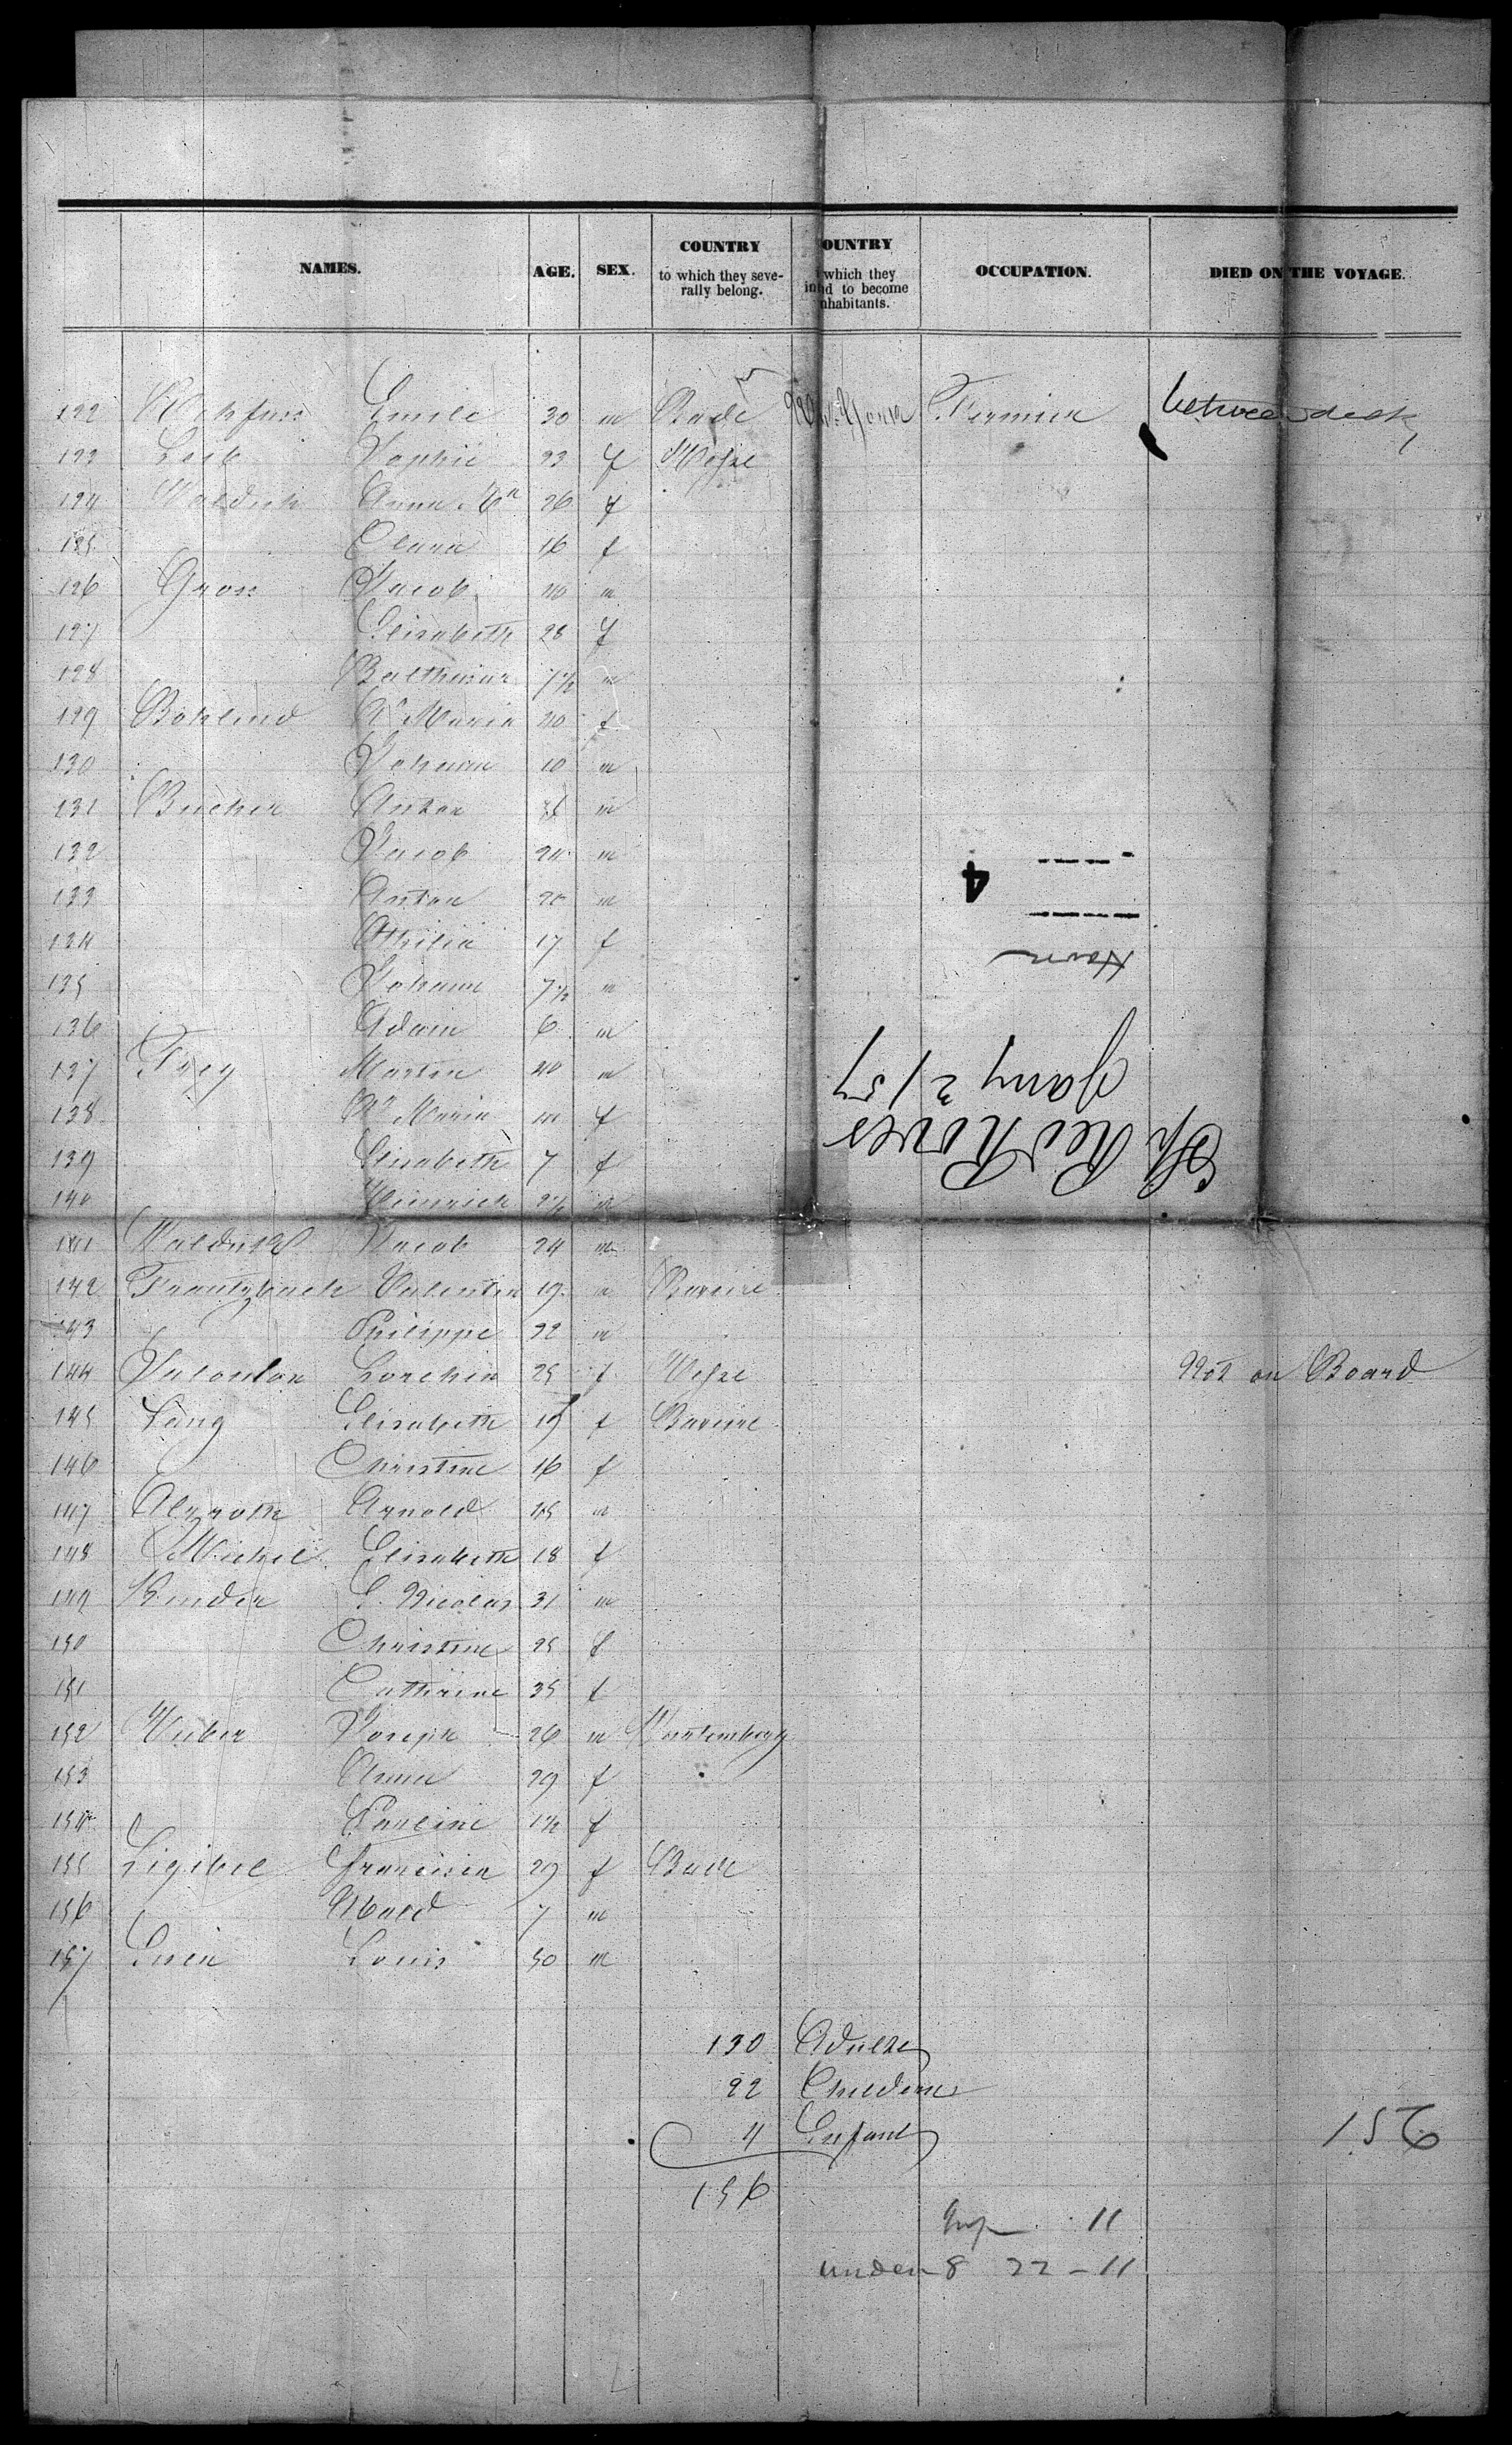 NAMES. AGE. SEX. COUNTRY to which they seve-rally belong. OUNTRY which they in d to become nhabitants. OCCUPATION. DIED ON THE VOYAGE.
122 Emile 30 m Bade Farmer between deck
123 Sophie 23 f Hesse
124 Anna 26 f
125 Clara 16 f
126 Gross Jacob 40 m
127 Elisabeth 28 f
128 Balthasar 7 1/2 m
129 Böhland Aª Maria 40 f
130 Johann 10 m
131 Bucher Anton m
132 Jacob 24 m
133 Anton 20 m
134 Othilia 17 f
135 Johann 7 1/2 m
136 Adam 6 m
137 Frey Martin 40 m
138 Aª Maria f
139 Elisabeth 7 f
140 Heinrich 2 1/2 m
141 Jacob 24 m
142 Frantzbach Valentin 19 m Baviere
143 Philippe 22 m
144 Lorchen 25 f Hesse Not on Board
145 Lang Elisabeth 19 f Baviere
146 Christine 16 f
147 Arnold m
148 Michel Elisabeth 18 f
149 Nicolas 31 m
150 Christine 25 f
151 Catherine 35 f
152 Huber Joseph 26 m Wurtemberg
153 Anna 29 f
154 Pauline 1 1/2 f
155 Ligibel 29 f Bade
156 7 m
157 Louis 50 m
4
Havre
Jany 2/57
Sh Red Rover
130 Adults
22 Children
4 Enfant
156
156
11
under 8 22 - 11